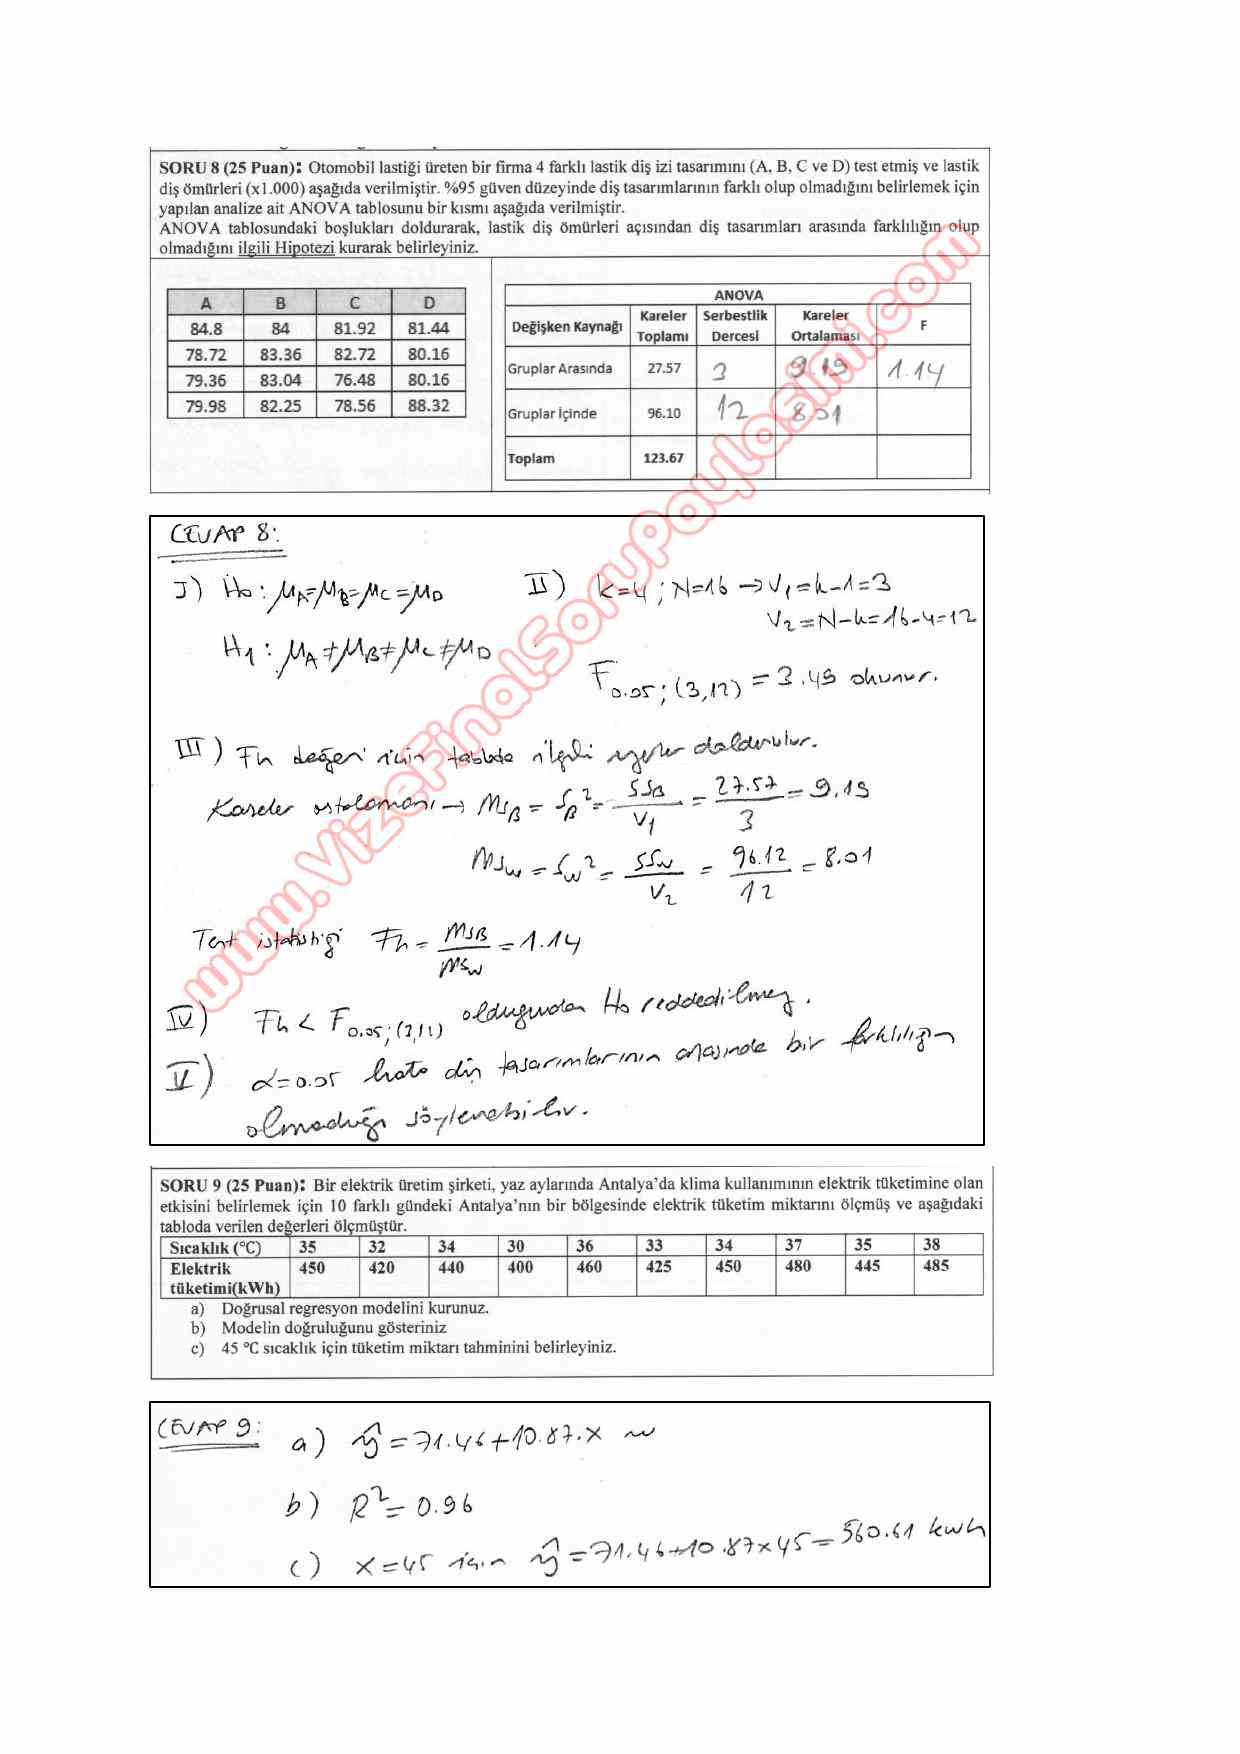 SORU 8 (25 Puan): Otomobil lastiği üreten bir firma 4 farklı lastik diş izi tasarımını (A, B, C ve D) test etmiş ve lastik
diş ömürleri (x1.000) aşağıda verilmiştir. %95 güven düzeyinde diş tasarımlarının farklı olup olmadığını belirlemek için
yapılan analize ait ANOVA tablosunu bir kısmı aşağıda verilmiştir.
ANOVA tablosundaki boşlukları doldurarak, lastik diş ömürleri açısından diş tasarımları arasında farklılığın olup
olmadığını ilgili Hipotezi kurarak belirleyiniz.
A B C D
84.8 84 81.92 81.44
78.72 83.36 82.72 80.16
79.36 83.04 76.48 80.16
79.98 82.25 78.56 88.32
ANOVA
Değişken Kaynağı Kareler Toplamı Serbestlik Dercesi Kareler Ortalaması F
Gruplar Arasında 27.57 3 9.19 1.14
Gruplar İçinde 96.10 12 8.01
Toplam 123.67
www.VizeFinalSoruPaylasimi.com
CEVAP 8:
I) H0: μA=μB=μC=μD
H1: μA≠μB≠μC≠μD
II) k=4; N=16 → V1=k-1=3
V2=N-k=16-4=12
F0.05;(3,12) = 3.49 okunur.
III) Fh değeri için tabloda ilgili yerler doldurulur.
Kareler ortalaması → MSB = SB² = SSB/V1 = 27.57/3 = 9.19
MSW = SW² = SSW/V2 = 96.12/12 = 8.01
Test istatistiği Fh = MSB/MSW = 1.14
IV) Fh < F0.05;(3,12) olduğundan H0 reddedilmez.
V) α=0.05 hata diş tasarımlarının arasında bir farklılığın
olmadığı söylenebilir.
SORU 9 (25 Puan): Bir elektrik üretim şirketi, yaz aylarında Antalya'da klima kullanımının elektrik tüketimine olan
etkisini belirlemek için 10 farklı gündeki Antalya'nın bir bölgesinde elektrik tüketim miktarını ölçmüş ve aşağıdaki
tabloda verilen değerleri ölçmüştür.
Sıcaklık (°C) 35 32 34 30 36 33 34 37 35 38
Elektrik tüketimi(kWh) 450 420 440 400 460 425 450 480 445 485
a) Doğrusal regresyon modelini kurunuz.
b) Modelin doğruluğunu gösteriniz
c) 45 °C sıcaklık için tüketim miktarı tahminini belirleyiniz.
CEVAP 9:
a) ŷ = 71.46+10.87.x
b) R²= 0.96
c) x=45 için ŷ = 71.46+10.87x45 = 560.61 kwh